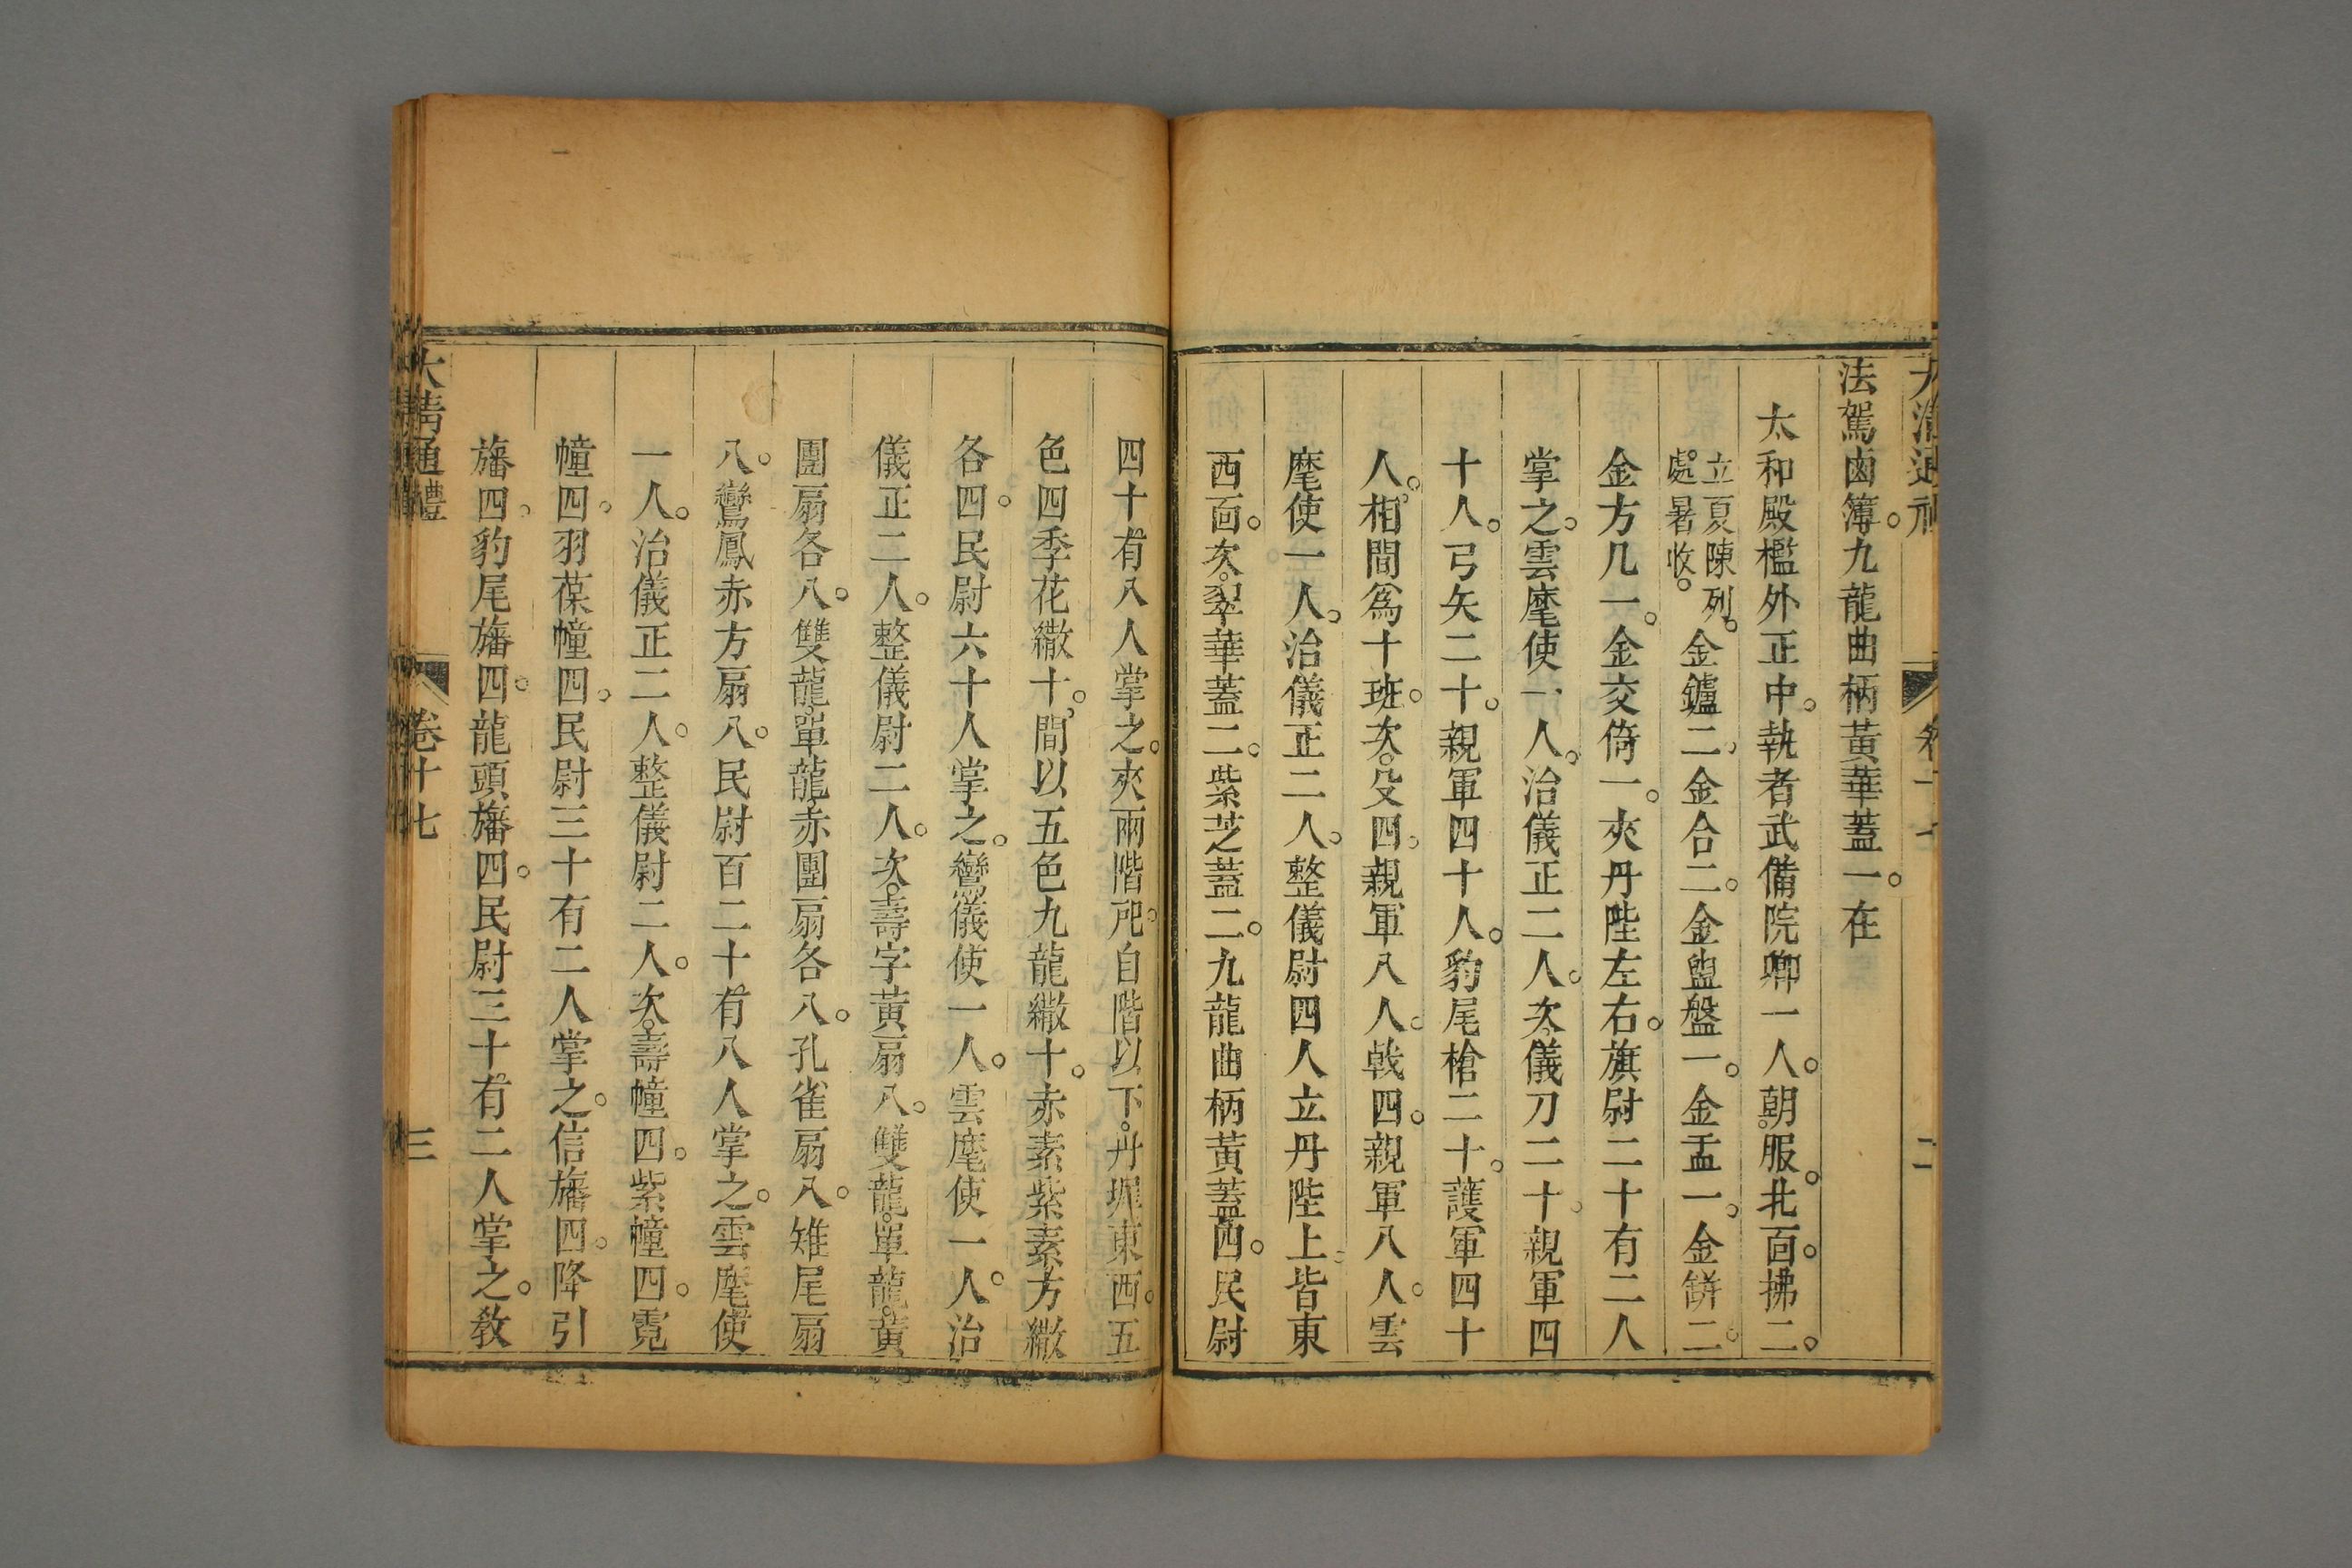 法駕鹵簿。九龍曲柄黃華蓋一。在
太和殿檻外正中。執者武備院卿一人。朝服。北面。拂二。
立夏陳列。
處暑收。
金鑪二。金合二。金盥盤一。金盂一。金缾二。
金方几一。金交倚一。夾丹陛左右。旗尉二十有二人
掌之。雲麾使一人。治儀正二人。次。儀刀二十。親軍四
十人。弓矢二十。親軍四十人。豹尾槍二十。護軍四十
人。相間爲十班。次。殳四。親軍八人。戟四。親軍八人。雲
麾使一人。治儀正二人。整儀尉四人立丹陛上。皆東
西面。次。翠華蓋二。紫芝蓋二。九龍曲柄黃蓋四。民尉
四十有八人掌之。夾兩階戺。自階以下。丹墀東西。五
色四季花繖十。間以五色九龍繖十。赤素紫素方繖
各四。民尉六十人掌之。鸞儀使一人。雲麾使一人。治
儀正二人。整儀尉二人。次。壽字黃扇八。雙龍。單龍。黃
團扇各八。雙龍。單龍。赤團扇各八。孔雀扇八。雉尾扇
八。鸞鳳赤方扇八。民尉百二十有八人掌之。雲麾使
一人。治儀正二人。整儀尉二人。次。壽幢四。紫幢四。霓
幢四。羽葆幢四。民尉三十有二人掌之。信旛四。降引
旛四。豹尾旛四。龍頭旛四。民尉三十有二人掌之。敎
大清通禮
卷十七
三